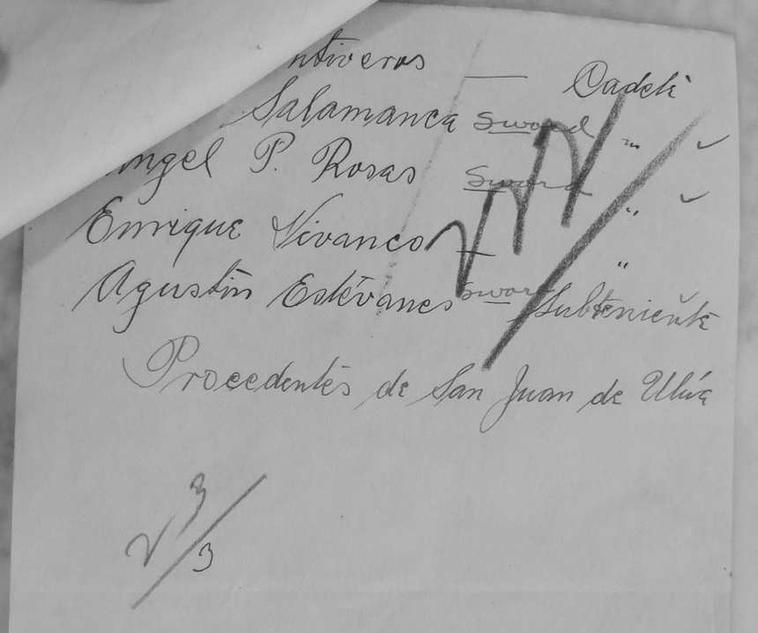 ntiveros — Cadete
Salamanca Sword " ✓
ngel P. Rosas Sword " ✓
Enrique Vivanco — "
Agustín Estévanes Sword Subteniente
Procedentes de San Juan de Ulúa
3/3